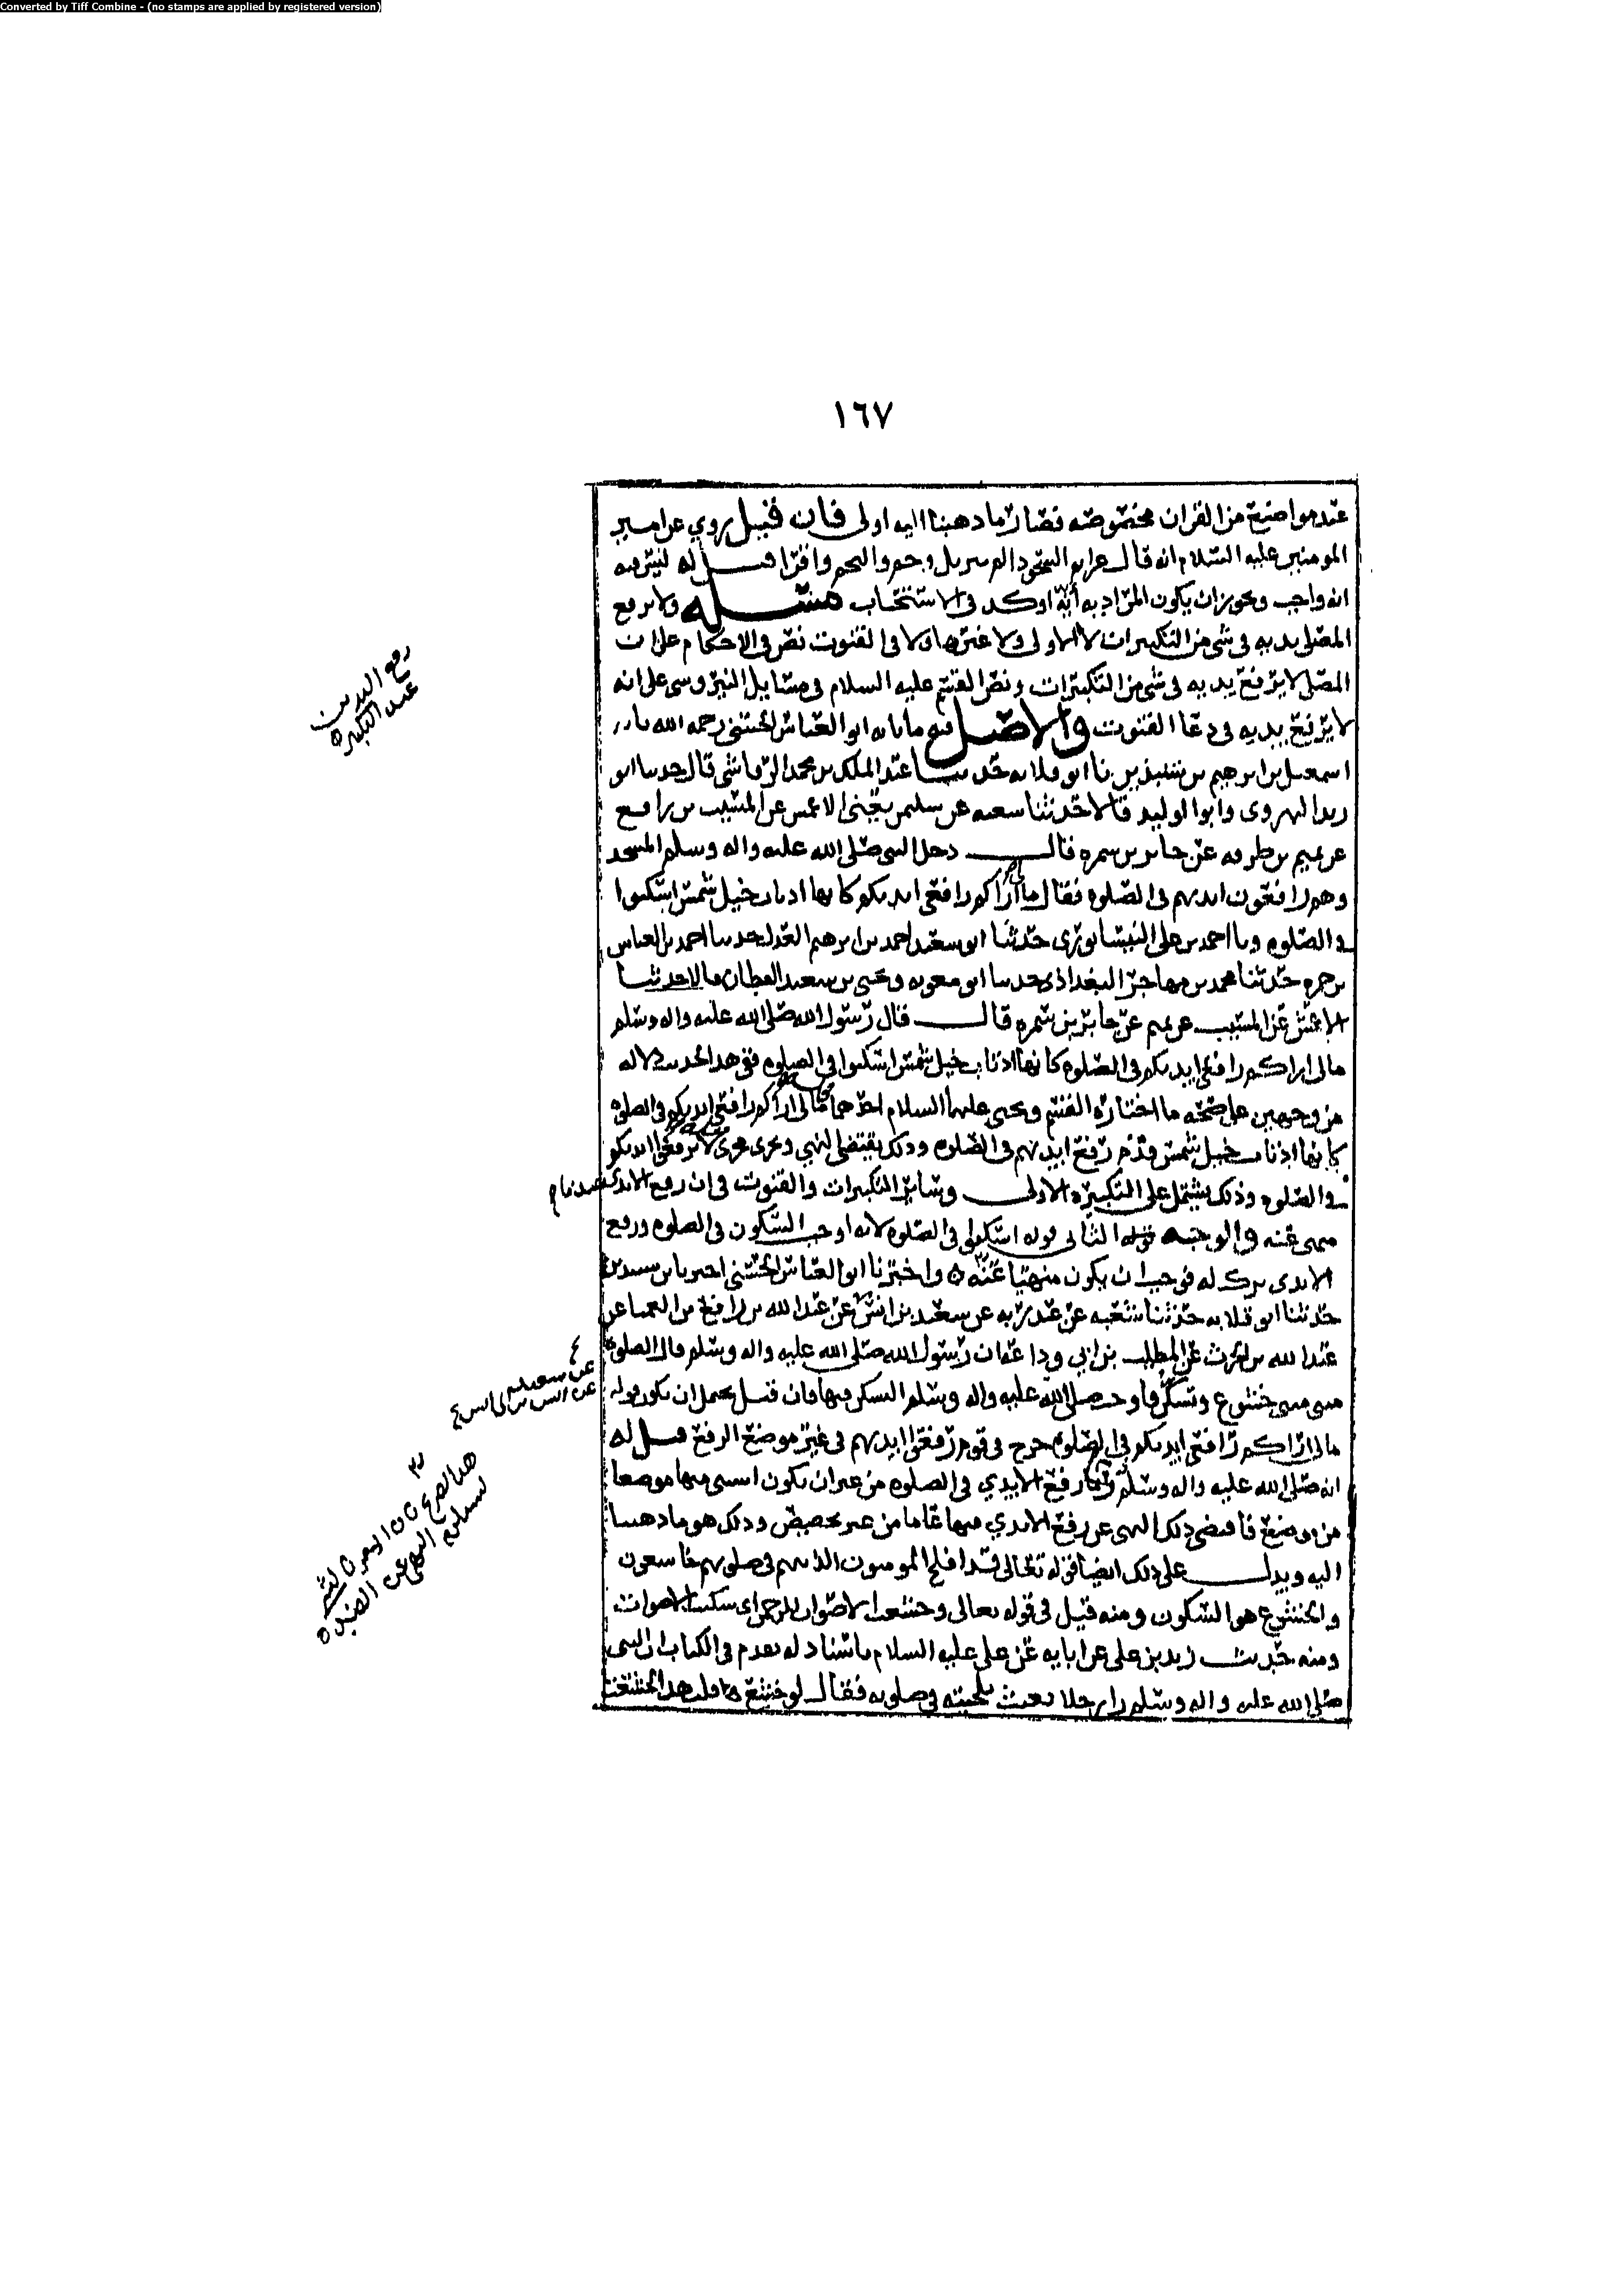 Converted by Tiff Combine - (no stamps are applied by registered version)
١٦٧
عند مواضع من القران مخصوصه فصار ما ذهبنا اليه اولى فان قيل روي عن امير
المومنين عليه السلام انه قال عزايم السجود الم تنزيل وحم والنجم واقرا قيل له ليس فيه
انه واجب ويجوز ان يكون المراد به أنه اوكد في الاستحباب مسئله ولا يرفع
المصلي يديه في شي من التكبيرات لا الاولى ولا غيرها ولا في القنوت نص في الاحكام على ان
المصلي لا يرفع يديه في شي من التكبيرات ونص القسم عليه السلام في مسايل النيروسي على انه
لا يرفع يديه في دعا القنوت والاصل فيه ما نا به ابو العباس الحسني رحمه الله
اسمعيل بن ابرهيم بن شنبذين نا ابو قلابه حدثنا عبد الملك بن محمد الرقاشي قال حدثنا ابو
زيد الهروي وابو الوليد قالا حدثنا شعبه عن سليمن يعني الاعمش عن المسيب بن رافع
عن تميم بن طرفه عن جابر بن سمره قال دخل النبي صلى الله عليه واله وسلم المسجد
وهم رافعون ايديهم في الصلوه فقال مالي أراكم رافعي ايديكم كانها اذناب خيل شمس اسكنوا
في الصلوه ونا احمد بن علي النيسابوري حدثنا ابو سعيد احمد بن ابرهيم العدل حدثنا احمد بن العباس
بن حمزه حدثنا محمد بن مهاجر البغداذي حدثنا ابو معويه ويحيى بن سعيد القطان قالا حدثنا
الاعمش عن المسيب عن تميم عن جابر بن سمره قال قال رسول الله صلى الله عليه واله وسلم
مالي اراكم رافعي ايديكم في الصلوه كانها اذناب خيل شمس اسكنوا في الصلوه ففي هذا الحديث دلاله
من وجهين على صحه ما اختاره القسم ويحيى عليهما السلام احدهما قوله مالي أراكم رافعي ايديكم في الصلوه
كانها اذناب خيل شمس فذم رفع ايديهم في الصلوه وذلك يقتضي النهي ويجري مجرى قوله لا ترفعوا ايديكم
في الصلوه وذلك يشتمل على التكبيره الاولى وساير التكبيرات والقنوت في ان رفع الايدي
منهى عنه والوجه الثاني قوله اسكنوا في الصلوه لانه اوجب السكون في الصلوه ورفع
الايدي ترك له فوجب ان يكون منهيا عنه ٥ واخبرنا ابو العباس الحسني اخبرنا بن
حدثنا ابو قلابه حدثنا شعبه عن عبد ربه عن سعيد بن انس عن عبد الله بن رافع بن العميا عن
عبد الله بن الحرث عن المطلب بن ابي وداعه ان رسول الله صلى الله عليه واله وسلم قال الصلوه
مثنى مثنى خشوع وتسكن فاوجب صلى الله عليه واله وسلم التسكن فيها فان قيل يحتمل ان يكون قوله
مالي اراكم رافعي ايديكم في الصلوه خرج في قوم رفعوا ايديهم في غير موضع الرفع قيل له
انه صلى الله عليه واله وسلم ذم رفع الايدي في الصلوه من غير ان يكون استثنى منها موضعا
من موضع فاقتضى ذلك النهي عن رفع الايدي فيها عاما من غير تخصيص وذلك هو ما ذهبنا
اليه ويدل على ذلك ايضا قوله تعالى قد افلح المومنون الذين هم في صلوتهم خاشعون
والخشوع هو السكون ومنه قيل في قوله تعالى وخشعت الاصوات للرحمن اي سكنت الاصوات
ومنه حديث زيد بن علي عن ابايه عن علي عليه السلام باسناد له تقدم في الكتاب ان النبي
صلى الله عليه واله وسلم راى رجلا يعبث بلحيته في صلوته فقال لو خشع قلب هذا لخشعت
رفع اليدين
عند التكبيره
عن سعيد
عن انس بن ابي انس